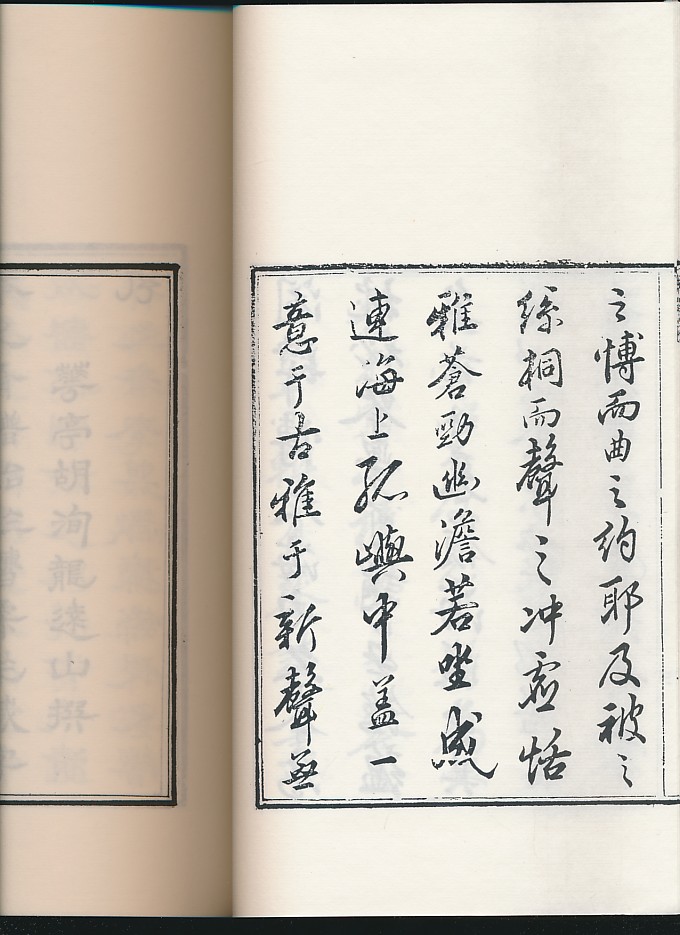 之愽而曲之約耶及被之
絲桐而聲之冲虛恬
雅蒼勁幽澹若坐成
連海上孤嶼中蓋一
意于古雅于新聲無
亭胡洵龍逵山撰